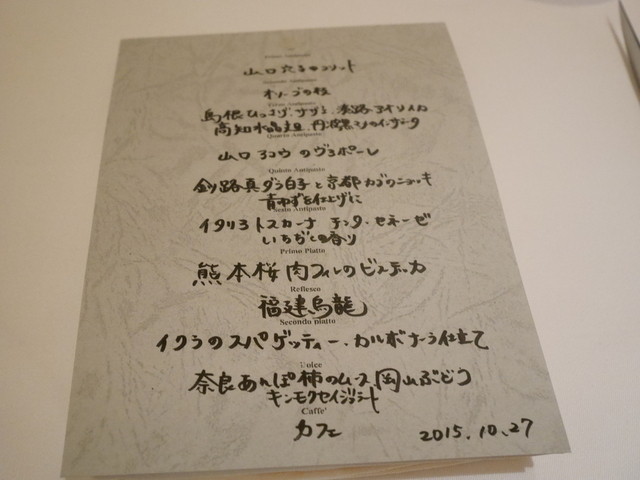 Primo Antipasto
山口 穴子のフリット
Secondo Antipasto
オリーブの枝
Terzo Antipasto
島根 ひっさげ、サザエ、淡路 アオリイカ
高知 水晶
Quarto Antipasto
山口 アコウ のヴァポーレ
Quinto Antipasto
釧路 真ダラ白子と京都 カブのニョッキ
青ゆず 仕上げに
Sesto Antipasto
イタリア トスカーナ チンタ・セネーゼ
いちぢくの香り
Primo Piatto
熊本桜肉フィレのビステッカ
Reflesco
福建烏龍
Secondo piatto
イクラのスパゲッティー、カルボナーラ仕立て
Dolce
奈良あんぽ柿のムース 岡山ぶどう
キンモクセイジェラート
Caffe'
カフェ
2015.10.27